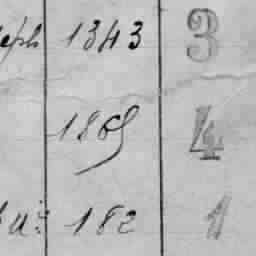 eph 1343 3
1869 4
182 1